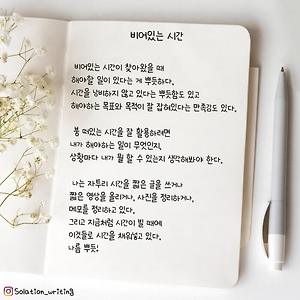 비어있는 시간
비어있는 시간이 찾아왔을 때
해야할 일이 있다는 게 뿌듯하다.
시간을 낭비하지 않고 있다는 뿌듯함도 있고
해야하는 목표와 목적이 잘 잡혀있다는 만족감도 있다.
붕 떠있는 시간을 잘 활용하려면
내가 해야하는 일이 무엇인지,
상황마다 내가 뭘 할 수 있는지 생각해봐야 한다.
나는 자투리 시간을 짧은 글을 쓰거나
짧은 영상을 올리거나, 사진을 정리하거나,
메모를 정리하고 있다.
그리고 지금처럼 시간이 빌 때에
이것들로 시간을 채워넣고 있다.
나름 뿌듯!
@Solation_writing